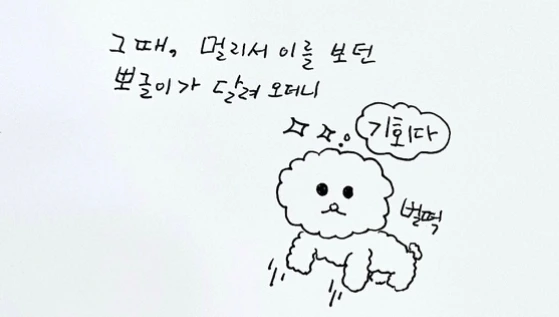 그때, 멀리서 이를 보던
뽀글이가 달려 오더니
기회다
벌떡